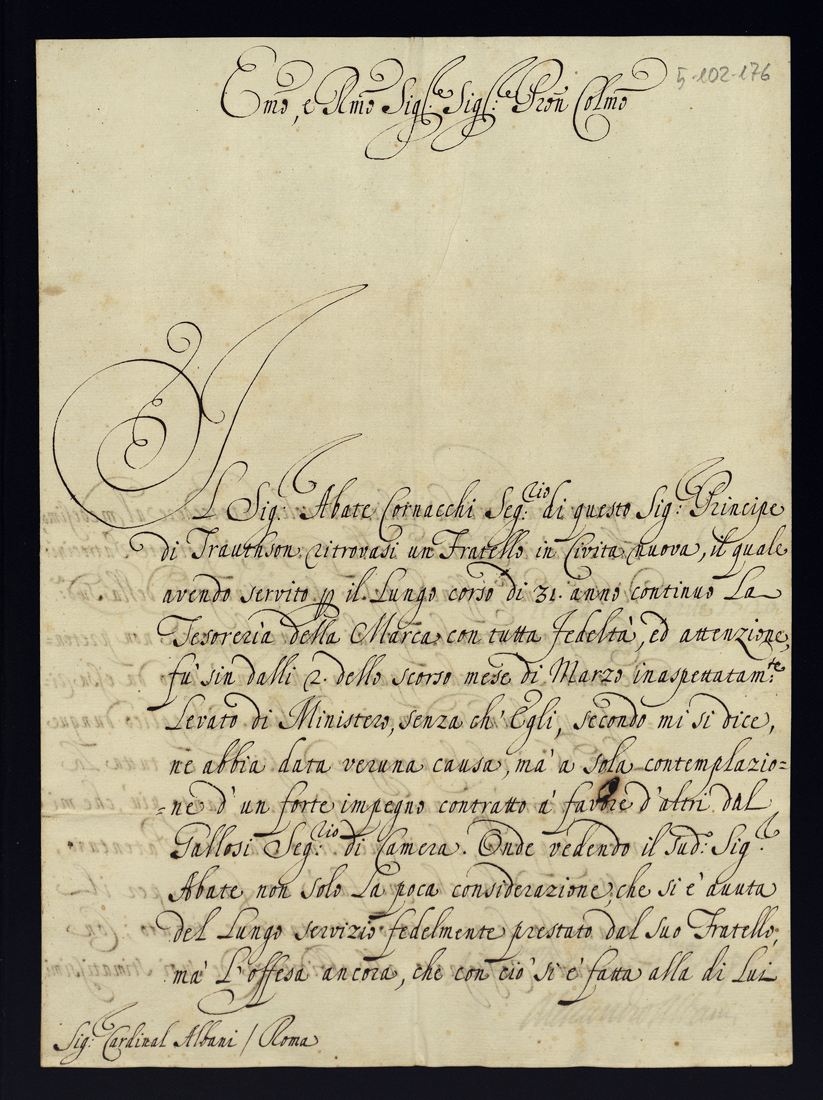 Emo, e Rmo Sig.re Sig.re Pron Colmo
5-102-176
Il Sig.r Abate Cornacchi Seg.rio di questo Sig.r Principe
di Trauthson ritrovasi un Fratello in Civita nuova, il quale
avendo servito p il Lungo corso di 31. anno continuo La
Tesoreria della Marca con tutta fedeltà, ed attenzione,
fù sin dalli 2. dello scorso mese di Marzo inaspettatam.te
Levato di Ministero, senza ch'Egli, secondo mi si dice,
ne abbia data veruna causa, mà a sola contemplazio=
=ne d'un forte impegno contratto à favore d'altri dal
Gallosi Seg.rio di Camera. Onde vedendo il sud.o Sig.r
Abate non solo La poca considerazione, che si è avuta
del Lungo servizio fedelmente prestato dal suo Fratello,
mà L'offesa ancora, che con ciò si è fatta alla di Lui
Sig.r Cardinal Albani / Roma